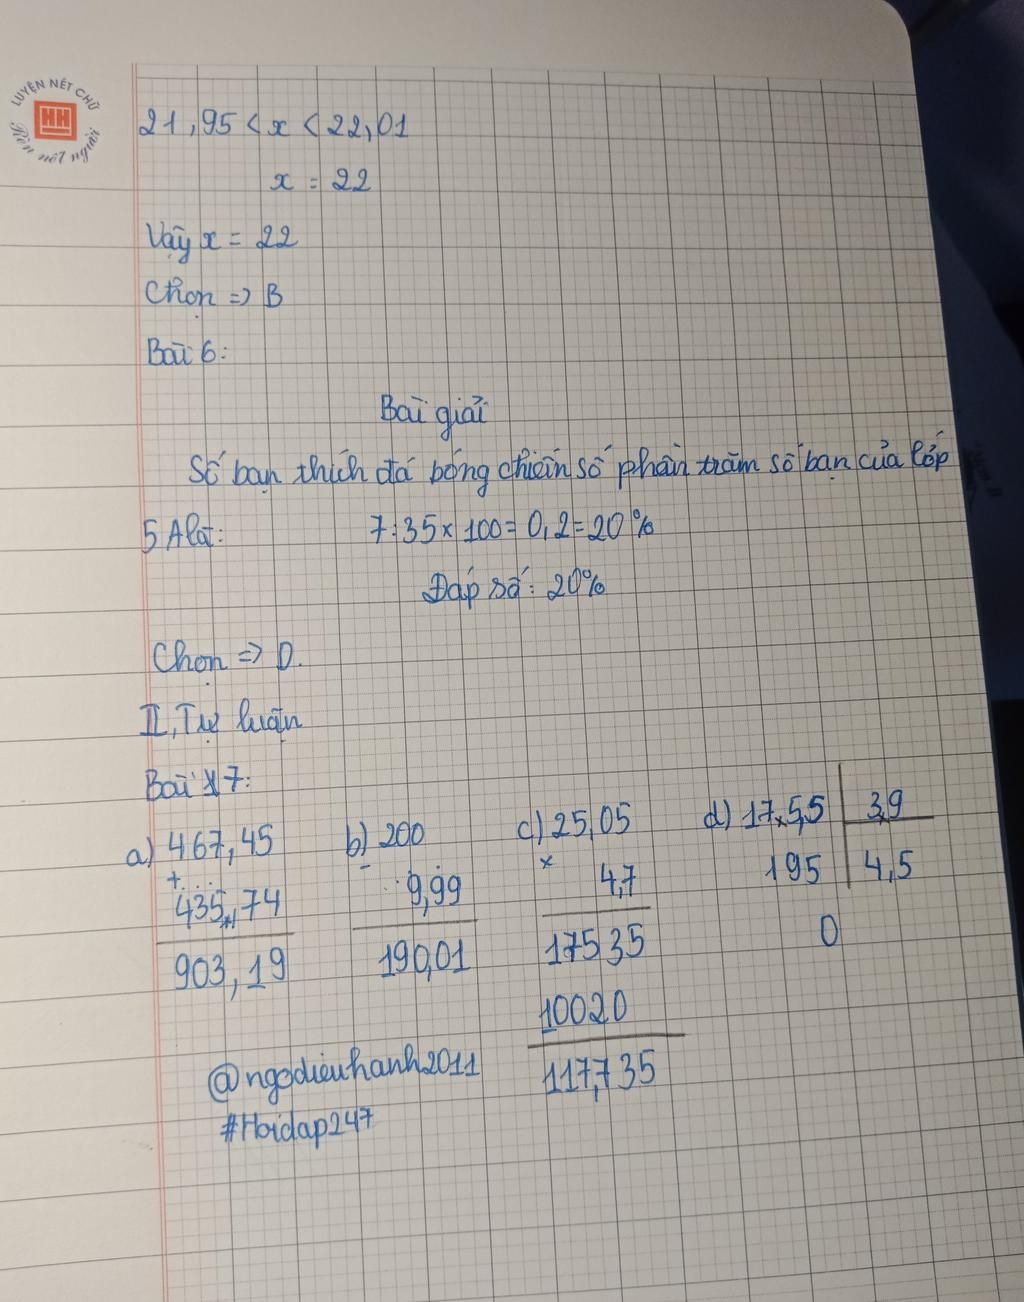 LUYỆN NÉT CHỮ
HH
Rèn nết người
21,95 < x < 22,01
x = 22
Vậy x = 22
Chọn => B
Bài 6:
Bài giải
Số bạn thích đá bóng chiến số phần trăm số bạn của lớp
5A là: 7:35 x 100 = 0,2 = 20%
Đáp số: 20%
Chọn => D.
II, Tự luận
Bài 7:
a) 467,45 b) 200 c) 25,05 d) 17,5,5 3,9
+ - x 195 4,5
435,74 9,99 4,7
903,19 190,01 17535 0
10020
117,735
@ngodieuhanh2011
#Hoidap247